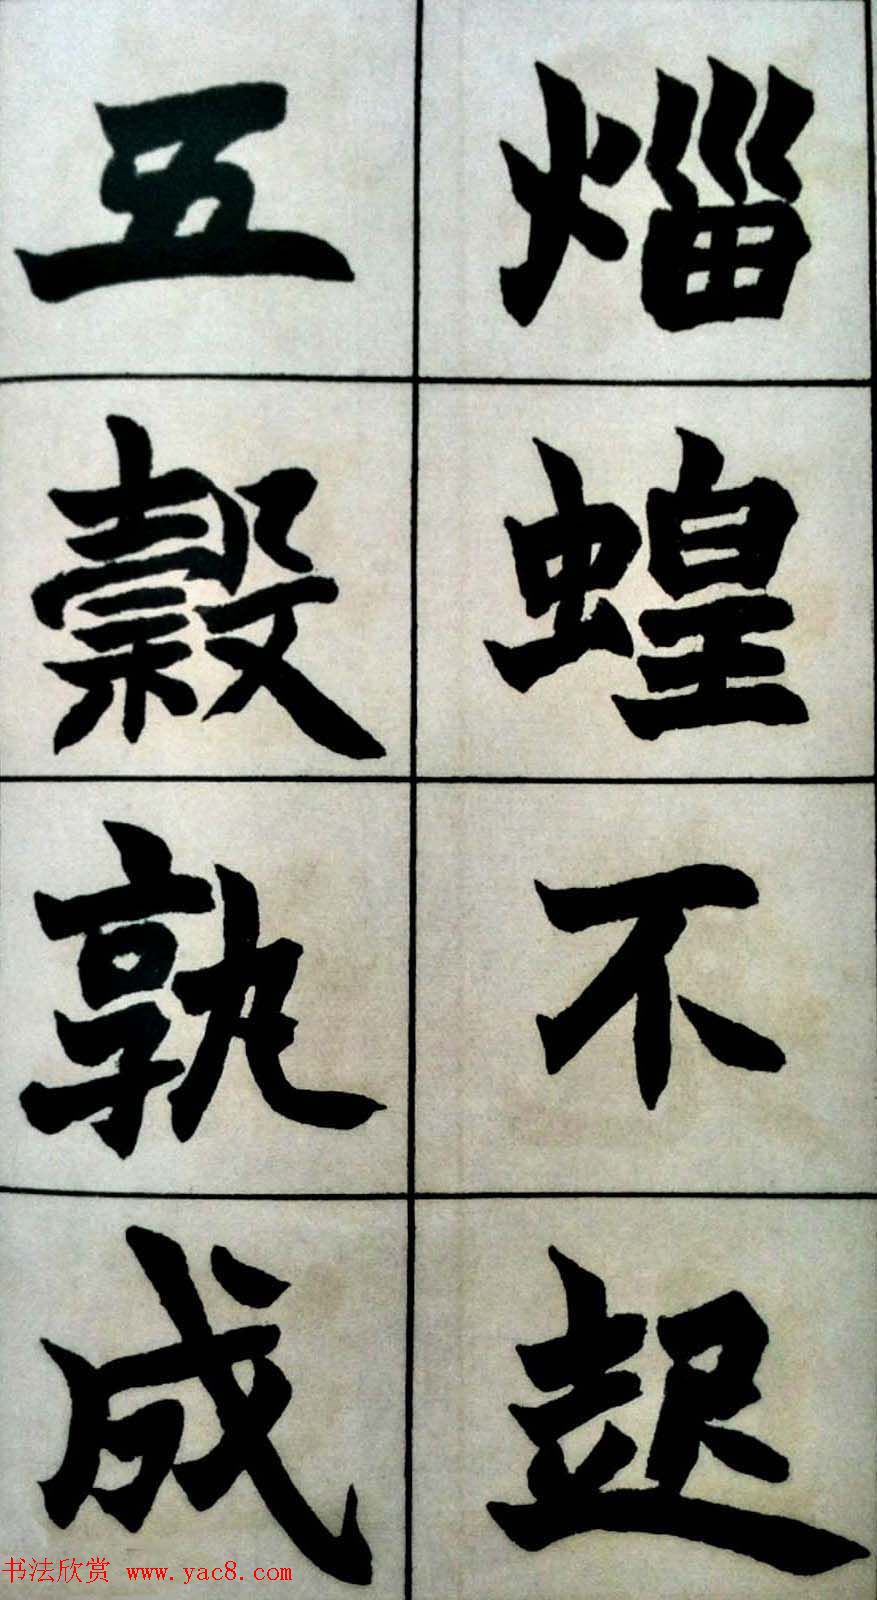 災蝗不起
五穀孰成
书法欣赏 www.yac8.com